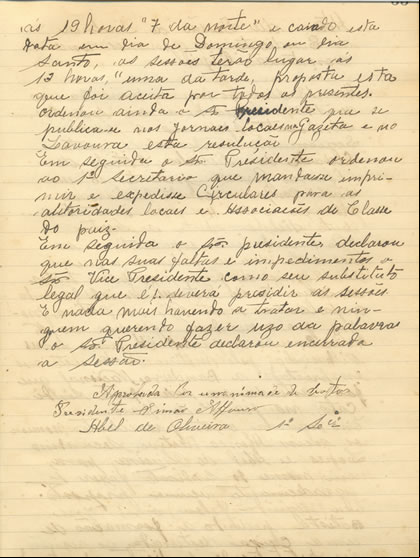 às 19 horas "7 da noite" e caindo esta
data em dia de Domingo, ou dia
Santo, as sessões terão lugar às
13 horas, "uma da tarde, proposta esta
que foi aceita por todos os presentes.
ordenou ainda o Sr. Presidente que se
publica-se nos Jornaes locaes na Gazeta e no
Lavoura esta resulução
Em seguida o Snr. Presidente ordenou
ao 1º Secretario que mandasse impri-
mir e expedisse Circulares para as
autoridades locaes e Associacões de Classe
do paiz.
Em seguida o Snr. presidente declarou
que nas suas faltas e impedimentos o
Snr. Vice Presidente como seu substituto
legal que é, deverá presidir as sessões
E nada mais havendo a tratar e nin-
guem querendo fazer uzo da palavra
o Snr. Presidente declarou encerrada
a sessão.
Aprovada por unanimidade de votos
Presidente Simão Affonso
Abel de Oliveira 1º